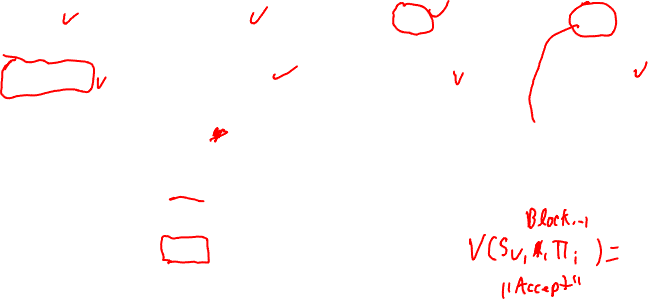 Block
V(Sv, x, πi) =
"Accept"